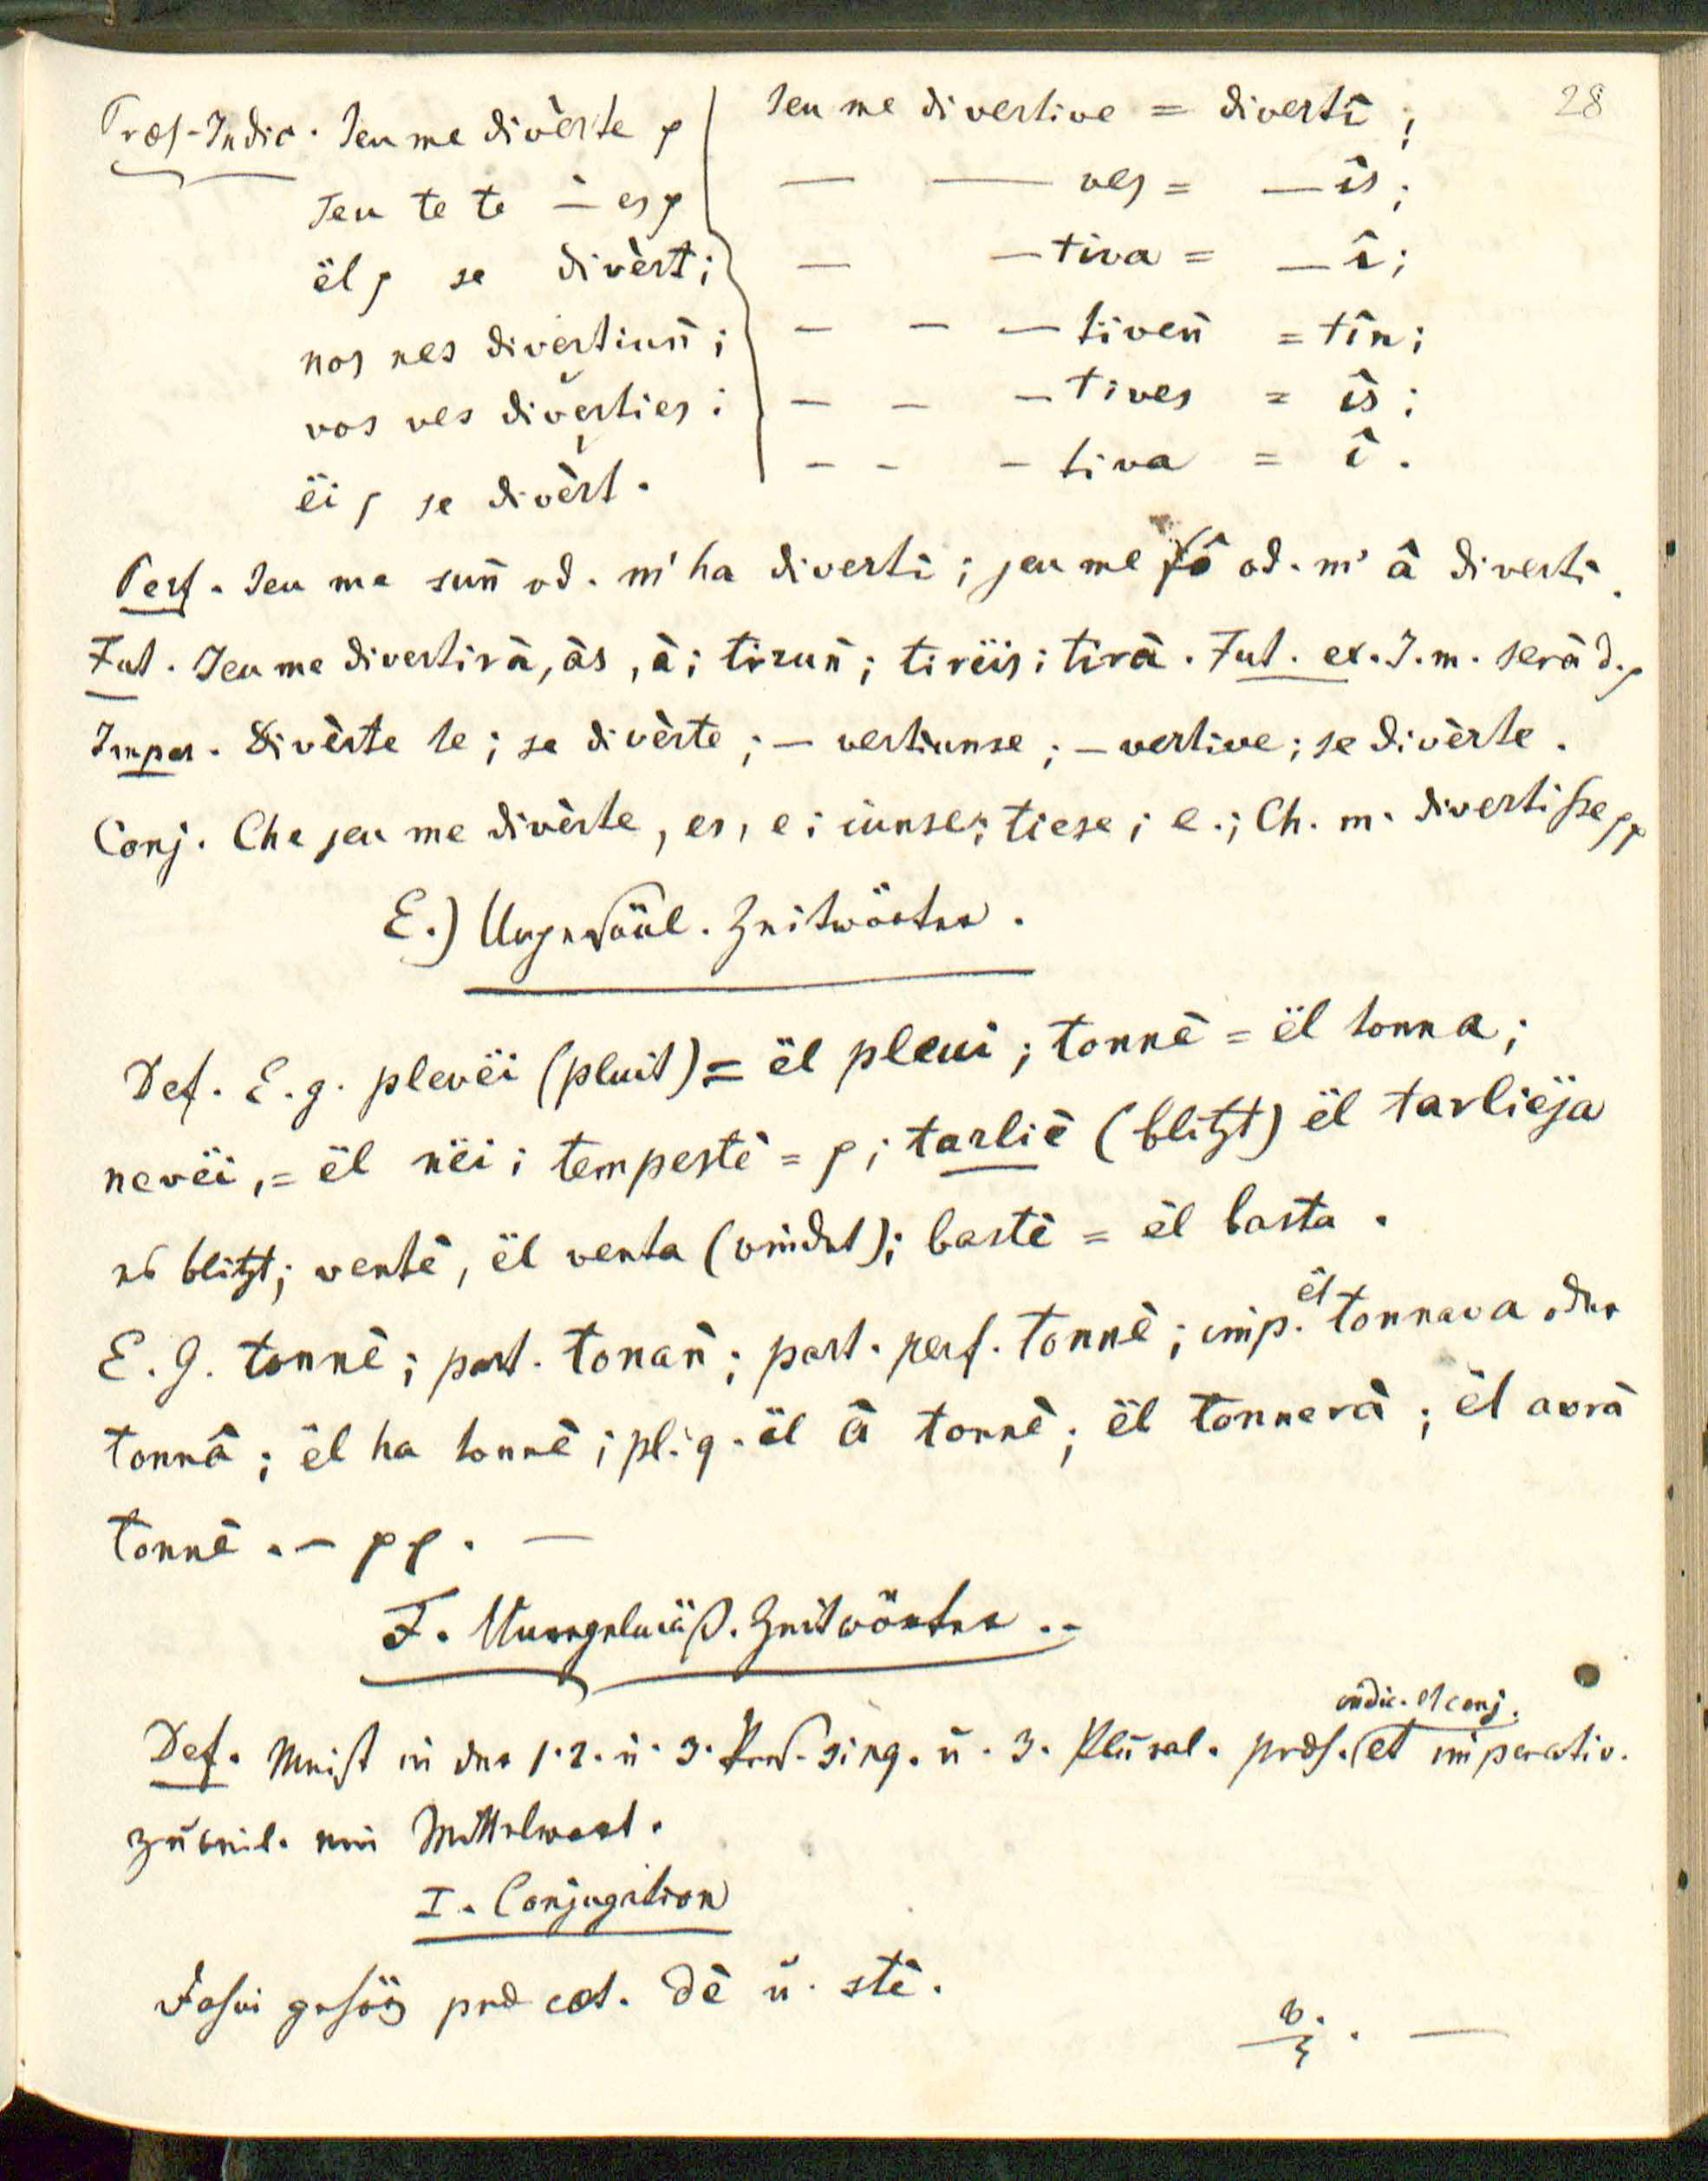 28
Præs-Indic. Jeu me divèrte p | Jeu me divertive = divertî;
Teu te te — es p | — — ves = — îs;
ël p se divèrt; — — tiva = — î;
nos nes divertiun̄; — — — tiven̄ = tîn;
vos ves diverties; — — — tives = îs;
ëi p se divèrt. — — — tiva = î.
Perf. Jeu me sun̄ od. m' ha divertì; jeu me fô od. m' â divertì.
Fut. Jeu me divertirà, às, à; tirun̄; tirëis; tirà. Fut. ex. J. m. serà d. p
Imper. Divèrte te; se divèrte; — vertiunse; — vertive; se divèrte.
Conj. Che jeu me divèrte, es, e; iunse; tiese; e.; Ch. m. divertisse pp
E.) Ungewöul. Zeitwörter.
Def. E. g. plevëi (pluit) = ël pleui; tonnè = ël tonna;
nevëi, = ël nëi; tempestè = p; tarliè (blitzt) ël tarlieja
es blitzt; ventè, ël venta (windet); bastè = ël basta.
E. G. tonnè; part. tonan̄; part. perf. tonnè; imp. ël tonnava oder
tonnâ; ël ha tonnè; pl. q. ël â tonnè; ël tonnerà; ël avrà
tonnè. — pp. —
F. Unregelmäß. Zeitwörter. —
Def. Meist in der 1. 2. u. 3. Pers. sing. u. 3. Plural. præs. indic. et conj. et imperativ.
zuweil. im Mittelwort.
I. Conjugation
Dahin gehört præ cæt. dè u. stè.